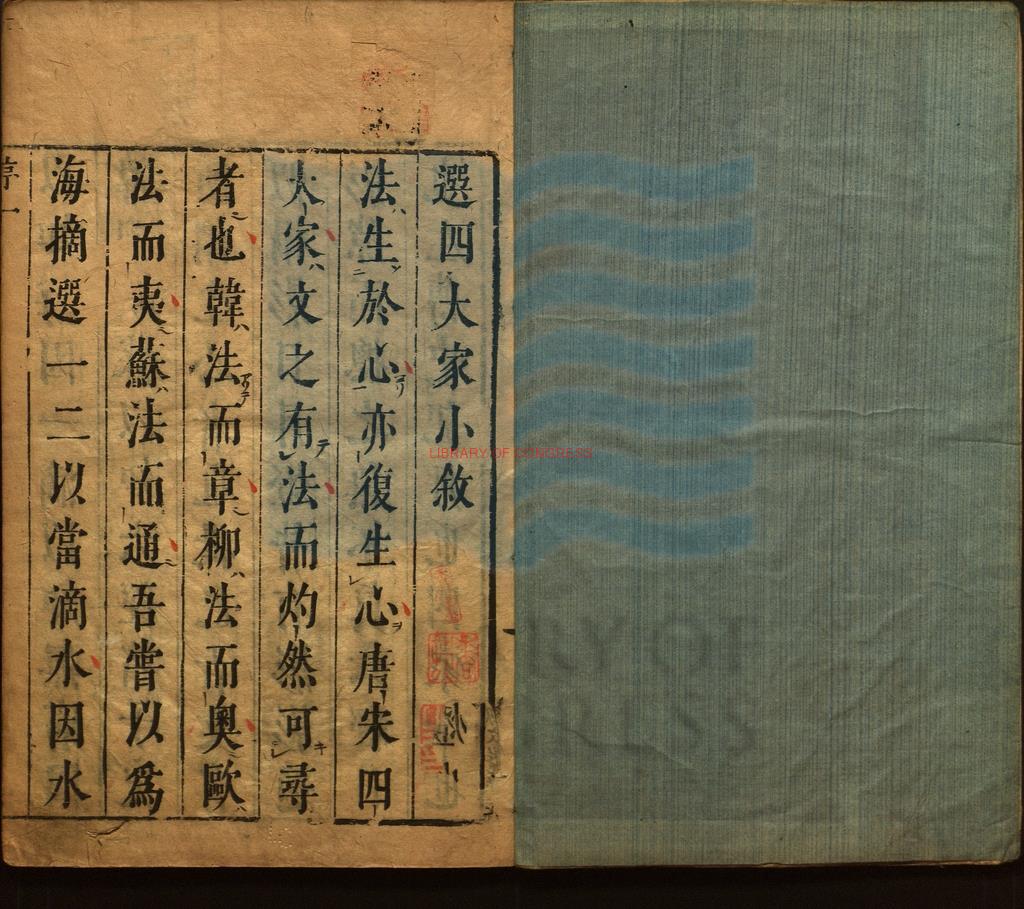 選四大家小敘
法生於心亦復生心唐宋四
大家文之有法而灼然可尋
者也韓法而章柳法而奧歐
法而夷蘇法而通吾嘗以為
海摘選一二以當滴水因水
序一
LIBRARY OF CONGRESS